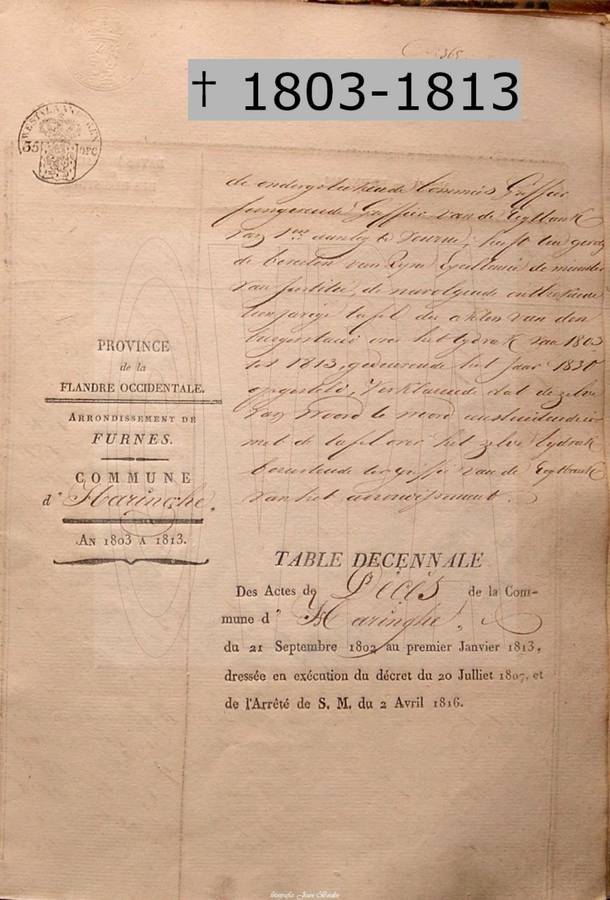 † 1803-1813
WESTVLAANDEREN
35
de ondergeteekende Commies Griffier
fungerende Griffier van de Regtbank
van 1ste aanleg te Veurne, heeft ten gevolge
de bevelen van Zyne Excellentie de minister
van Justitie, de navolgende
tienjarige tafel der akten van den
burgerstand over het tydvak van 1803
tot 1813, gedurende het jaar 1830
opgesteld, Verklarende dat dezelve
van woord te woord
met de tafel over het zelve tydvak
berustende ter griffie van de Regtbank
van het arrondissement.
PROVINCE
de la
FLANDRE OCCIDENTALE.
ARRONDISSEMENT DE
FURNES.
COMMUNE
d' Haringhe.
AN 1803 A 1813.
TABLE DECENNALE
Des Actes de Décès de la Com-
mune d' Haringhe,
du 21 Septembre 1802 au premier Janvier 1813,
dressée en exécution du décret du 20 Julliet 1807, et
de l'Arrêté de S. M. du 2 Avril 1816.